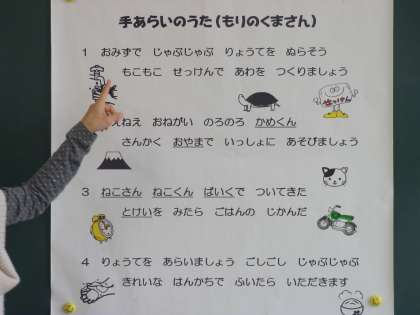 手あらいのうた(もりのくまさん)
1 おみずで じゃぶじゃぶ りょうてを ぬらそう
もこもこ せっけんで あわを つくりましょう
せっけん
ねえ おねがい のろのろ かめくん
さんかく おやまで いっしょに あそびましょう
3 ねこさん ねこくん ばいくで ついてきた
とけいを みたら ごはんの じかんだ
4 りょうてを あらいましょう ごしごし じゃぶじゃぶ
きれいな はんかちで ふいたら いただきます